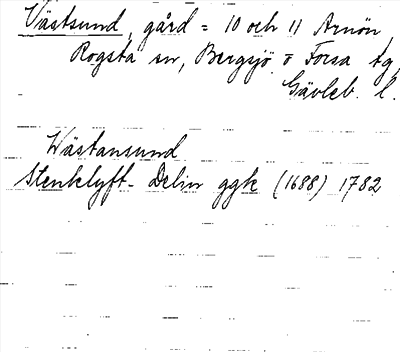 Västsund, gård = 10 och 11 Arnön,
Rogsta sn, Bergsjö o Forsa tg,
Gävleb. l.
Wästansund
Stenklyft-Delin ggk (1688) 1782